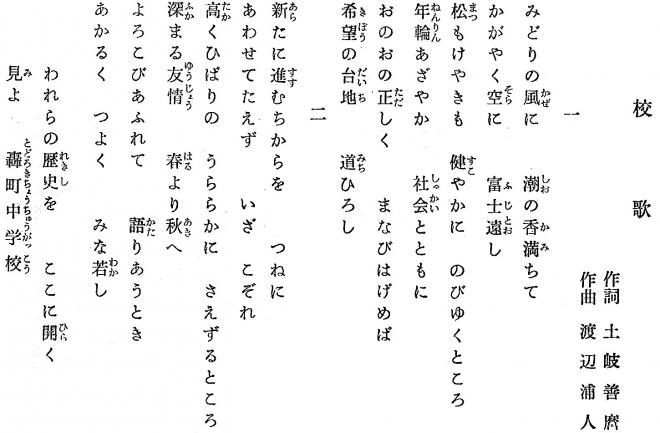 校歌
作詞 土岐善麿
作曲 渡辺浦人
一
みどりの風に 潮の香満ちて
かがやく空に 富士遠し
松もけやきも 健やかに のびゆくところ
年輪あざやか 社会とともに
おのおの正しく まなびはげめば
希望の台地 道ひろし
二
新たに進むちからを つねに
あわせてたえず いざ こぞれ
高くひばりの うららかに さえずるところ
深まる友情 春より秋へ
よろこびあふれて 語りあうとき
あかるく つよく みな若し
われらの歴史を ここに開く
見よ 轟町中学校